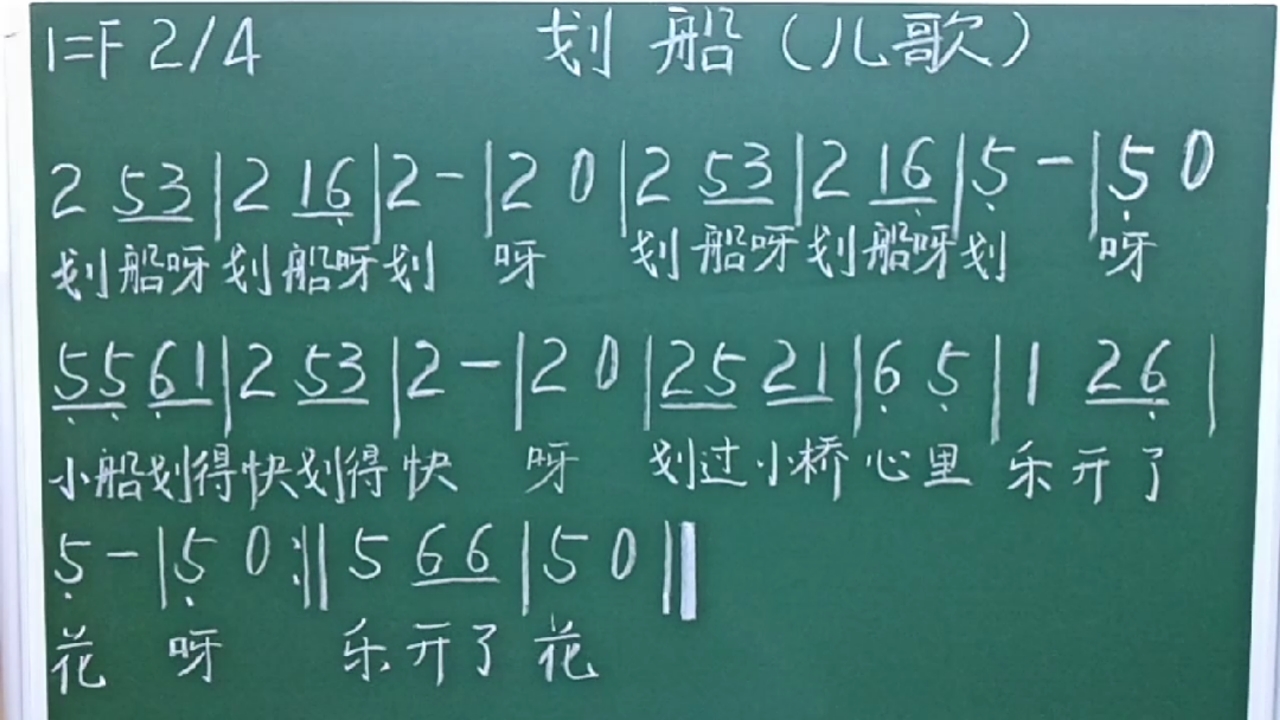 1=F 2/4 划船（儿歌）
2 53|2 16̣|2-|2 0|2 53|2 16̣|5̣-|5̣ 0
划船呀划船呀划 呀 划船呀划船呀划 呀
5̣5̣ 6̣1|2 53|2-|2 0|25 21|6̣ 5̣|1 26̣|
小船划得快划得快 呀 划过小桥心里乐开了
5̣-|5̣ 0:‖ 5 66|5 0‖
花 呀 乐开了花